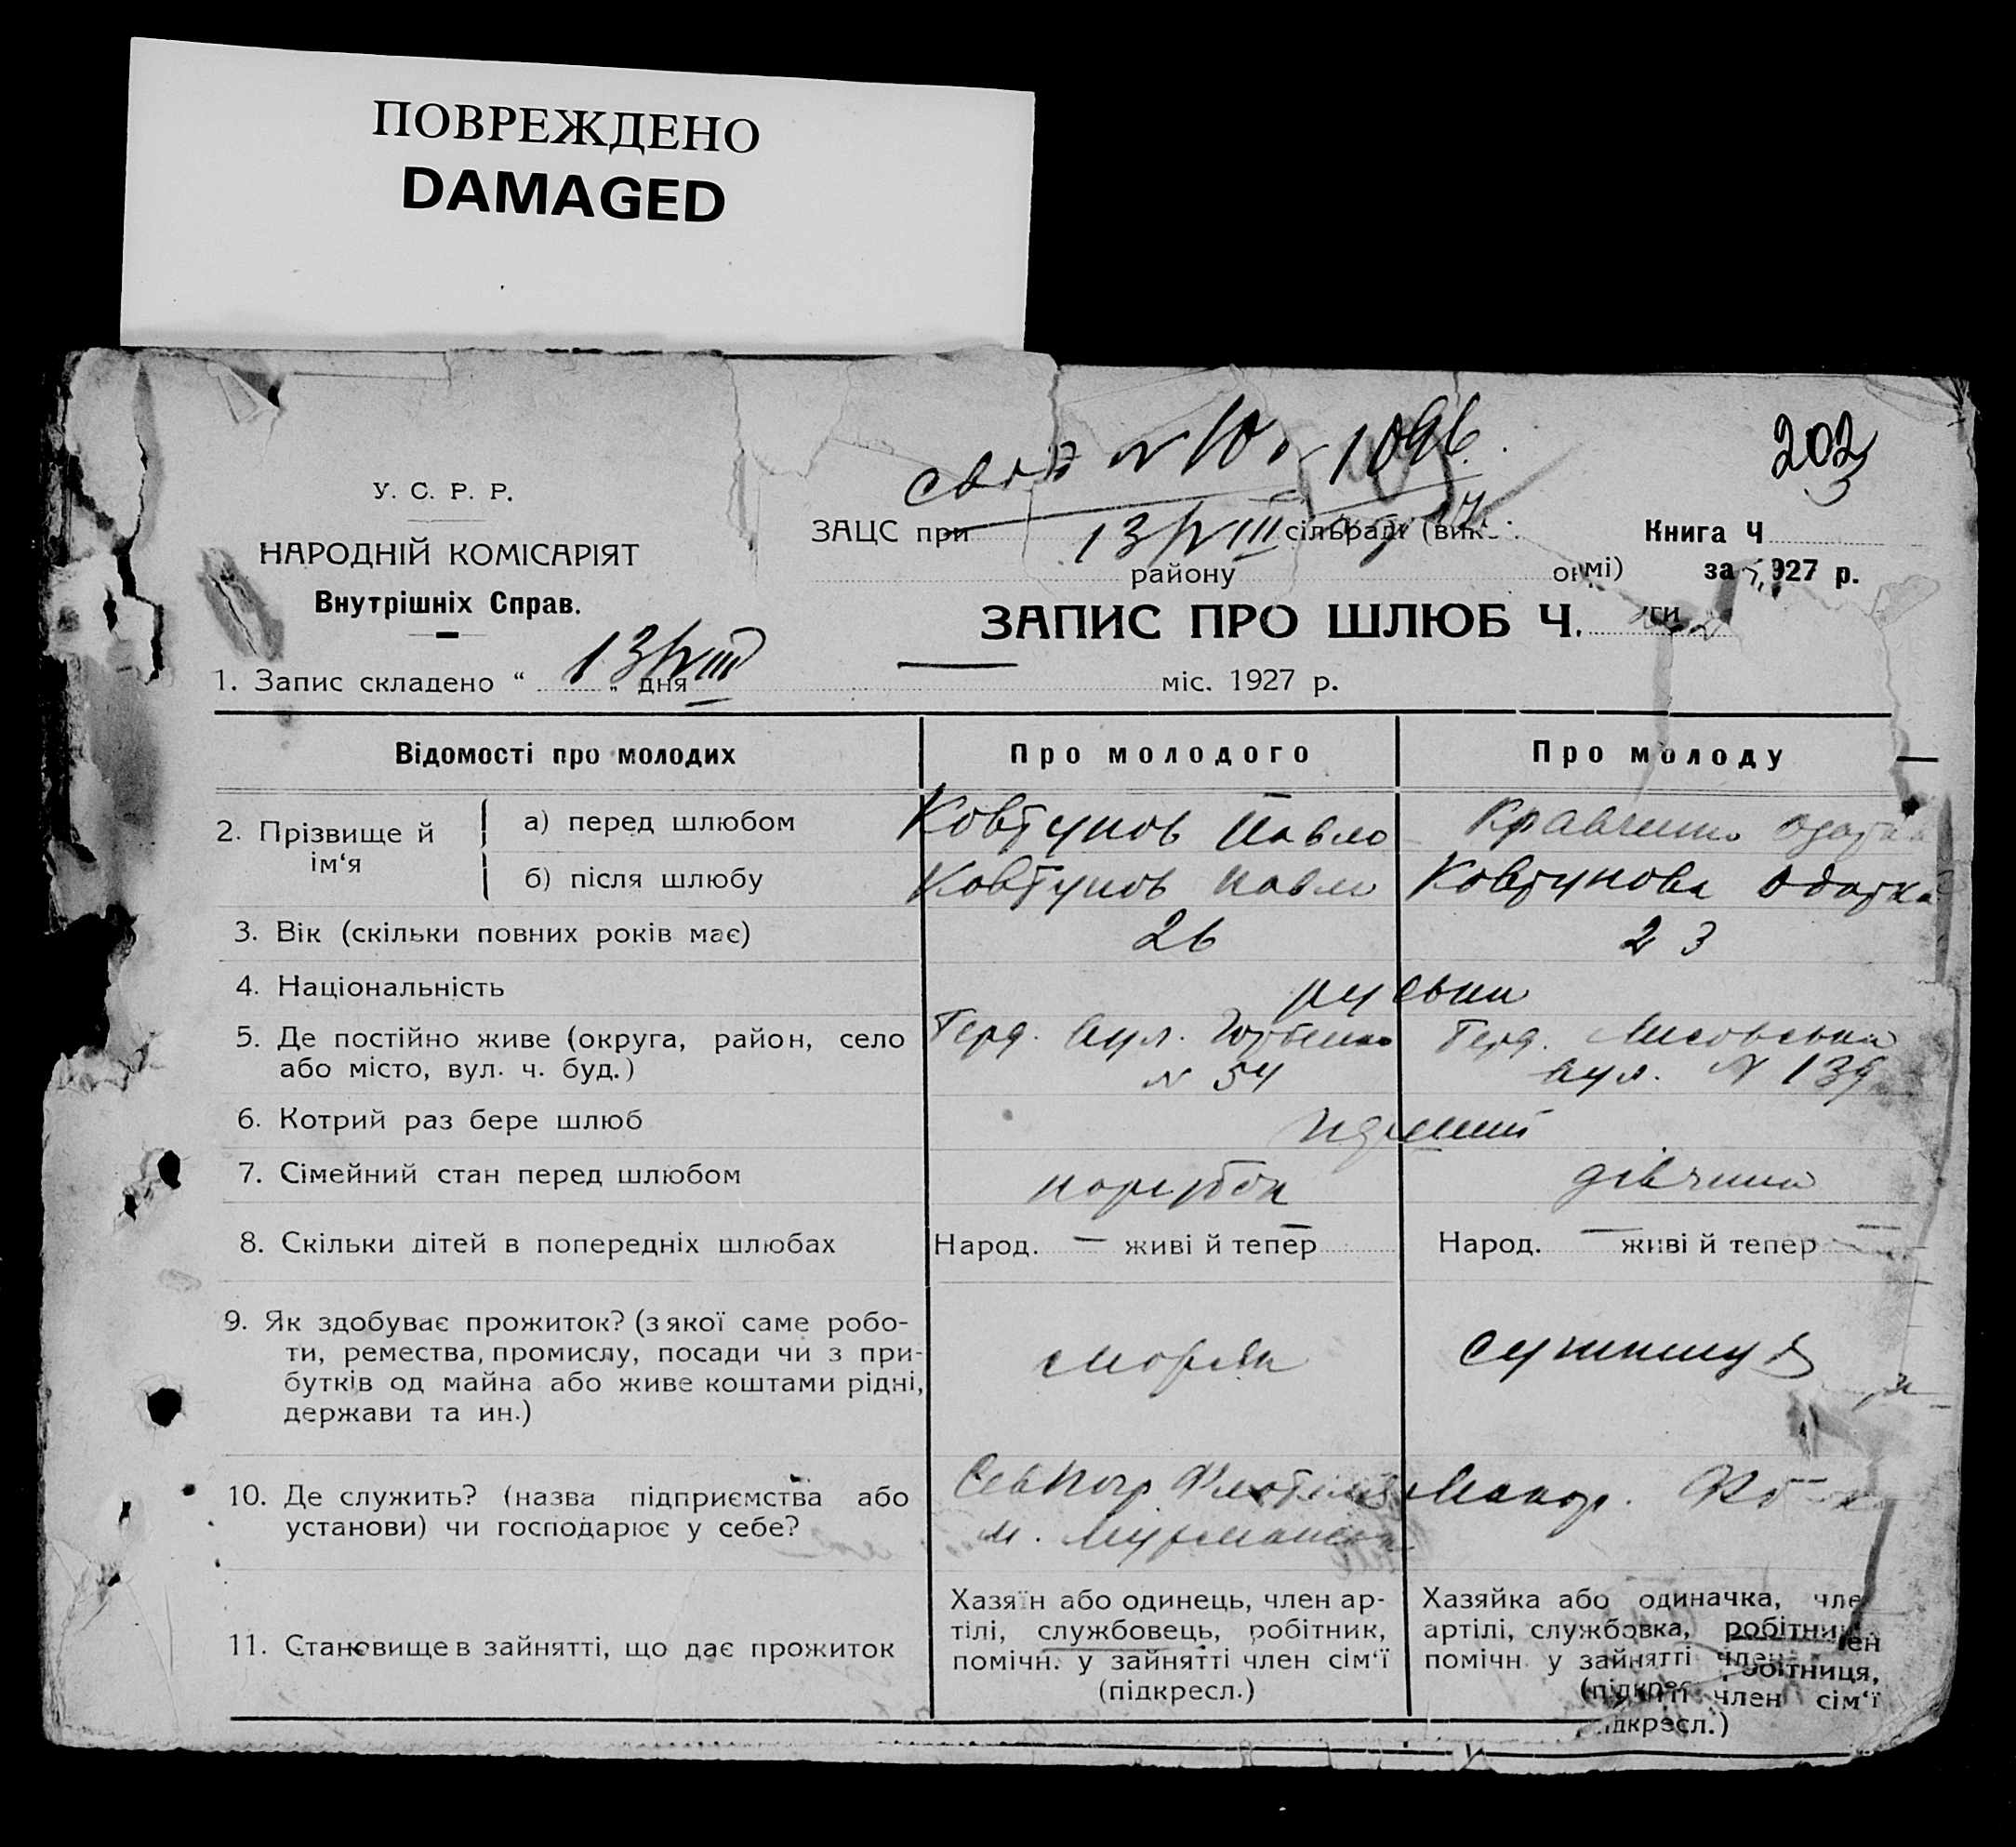 ПОВРЕЖДЕНО
DAMAGED
203
У. С. Р. Р.
НАРОДНІЙ КОМІСАРІЯТ
Внутрішніх Справ.
1096
ЗАЦС при 13/VIII сільраді (вик
району
мі)
Книга Ч
за 1927 р.
ЗАПИС ПРО ШЛЮБ Ч.
1. Запис складено “ 13/VIII „ дня міс. 1927 р.
Відомості про молодих Про молодого Про молоду
2. Прізвище й ім‘я
а) перед шлюбом Ковтунов Павло Кравченко Одарка
б) після шлюбу Ковтунов Павло Ковтунова Одарка
3. Вік (скільки повних років має) 26 23
4. Національність руськи
5. Де постійно живе (округа, район, село Берд. вул. Берд. Лисовська
або місто, вул. ч. буд.) № 54 вул. № 139
6. Котрий раз бере шлюб перший
7. Сімейний стан перед шлюбом парубок дівчина
8. Скільки дітей в попередніх шлюбах Народ. — живі й тепер — Народ. — живі й тепер —
9. Як здобуває прожиток? (з якої саме робо-
ти, ремества, промислу, посади чи з при-
бутків од майна або живе коштами рідні,
держави та ин.)
моряк
10. Де служить? (назва підприємства або
установи) чи господарює у себе?
м. Мурманськ
11. Становище в зайнятті, що дає прожиток
Хазяїн або одинець, член ар-
тілі, службовець, робітник,
помічн. у зайнятті член сім‘ї
(підкресл.)
Хазяйка або одиначка, чле
артілі, службовка, робітни
помічн. у зайнятті член
ен
обітниця,
член сім‘ї
ідкресл.)